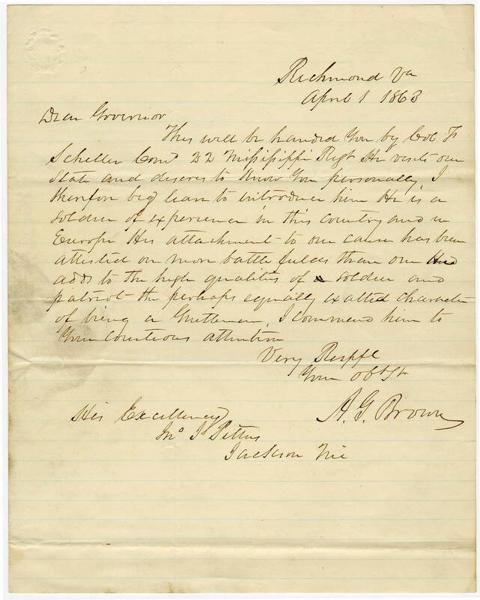 Richmond Va
April 1 1863
Dear Governor
This will be handed You by Col F
Scheller Comd 22 Mississippi Regt He visits our
State and desires to Know You personally I
therefore beg leave to introduce him He is a
soldier of experience in this country and in
Europe His attachment to our cause has been
attested on more battle fields than one He
adds to the high qualities of a soldier and
patriot the perhaps equally exalted character
of being a Gentleman, I commend him to
Your courteous attention
Very Respfl
Your obt St
A. G. Brown
His Excellency
Jno J. Pettus
Jackson Mi